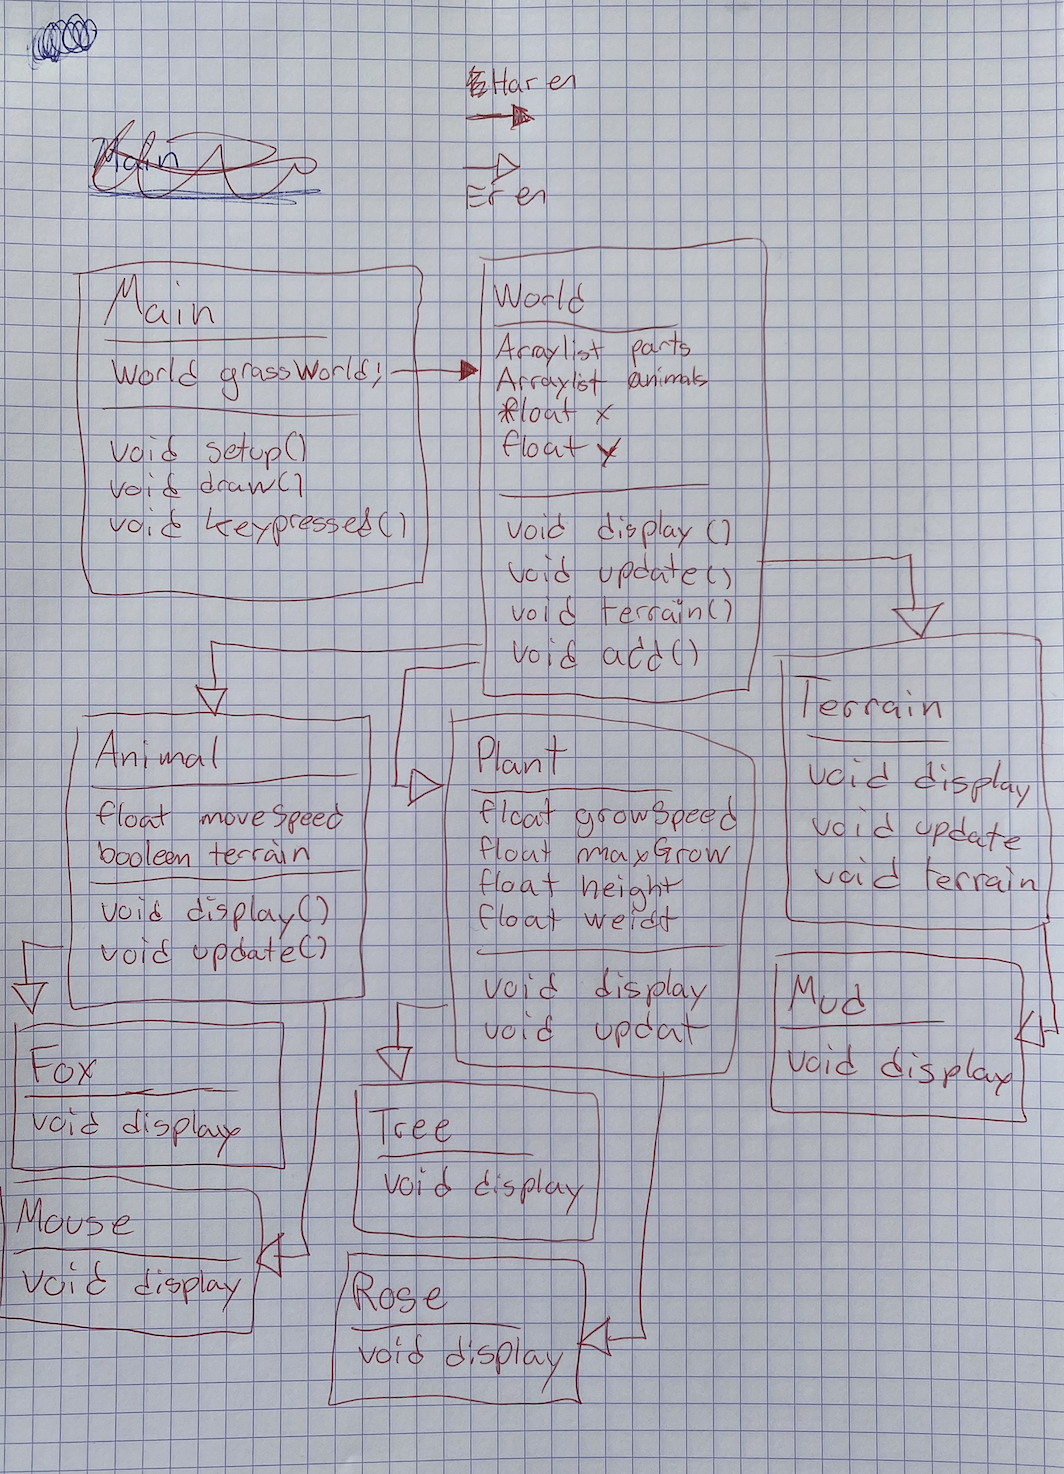 Har en
Er en
Main
World grassWorld;
void setup()
void draw()
void keypressed()
World
Arraylist parts
Arraylist animals
float x
float y
void display()
void update()
void terrain()
void add()
Terrain
void display
void update
void terrain
Animal
float moveSpeed
booleen terrain
void display()
void update()
Plant
float growSpeed
float maxGrow
float height
float weidt
void display
void updat
Mud
void display
Fox
void display
Tree
void display
Mouse
void display
Rose
void display